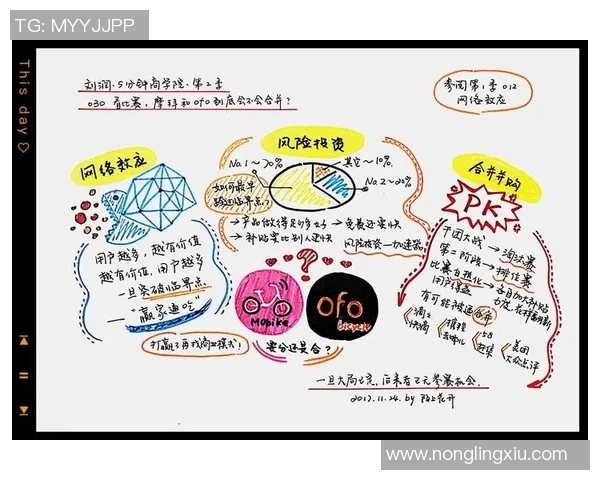 TG: MYYJJPP
This day
刘润·5分钟商学院·第2季
030 有比赛，摩拜和ofo到底会不会合并？
参阅第1季012
网络效应
网络效应
用户越多，越有价值
越有价值，用户越多
一旦突破临界点
—"赢家通吃"
打赢了再找商业模式！
风险投资
No.1~70%
其它~10%
No.2~20%
如何最早
跨过临界点？
→产品做得足够好→免费还要快
→补贴要比别人更快
风险投资—加速器
?
mobike
ofo
bicycle
要分还是合？
合并并购
PK
千团大战→淘汰赛
第二阶段→排位赛
比赛白热化→
用户得益
有可能被逼合并
滴滴
快滴
携程
去哪儿
58
赶集
美团
大众点评
一旦大局已定，后来者已无参赛机会。
2017.11.24. by
www.nonglingxiu.com